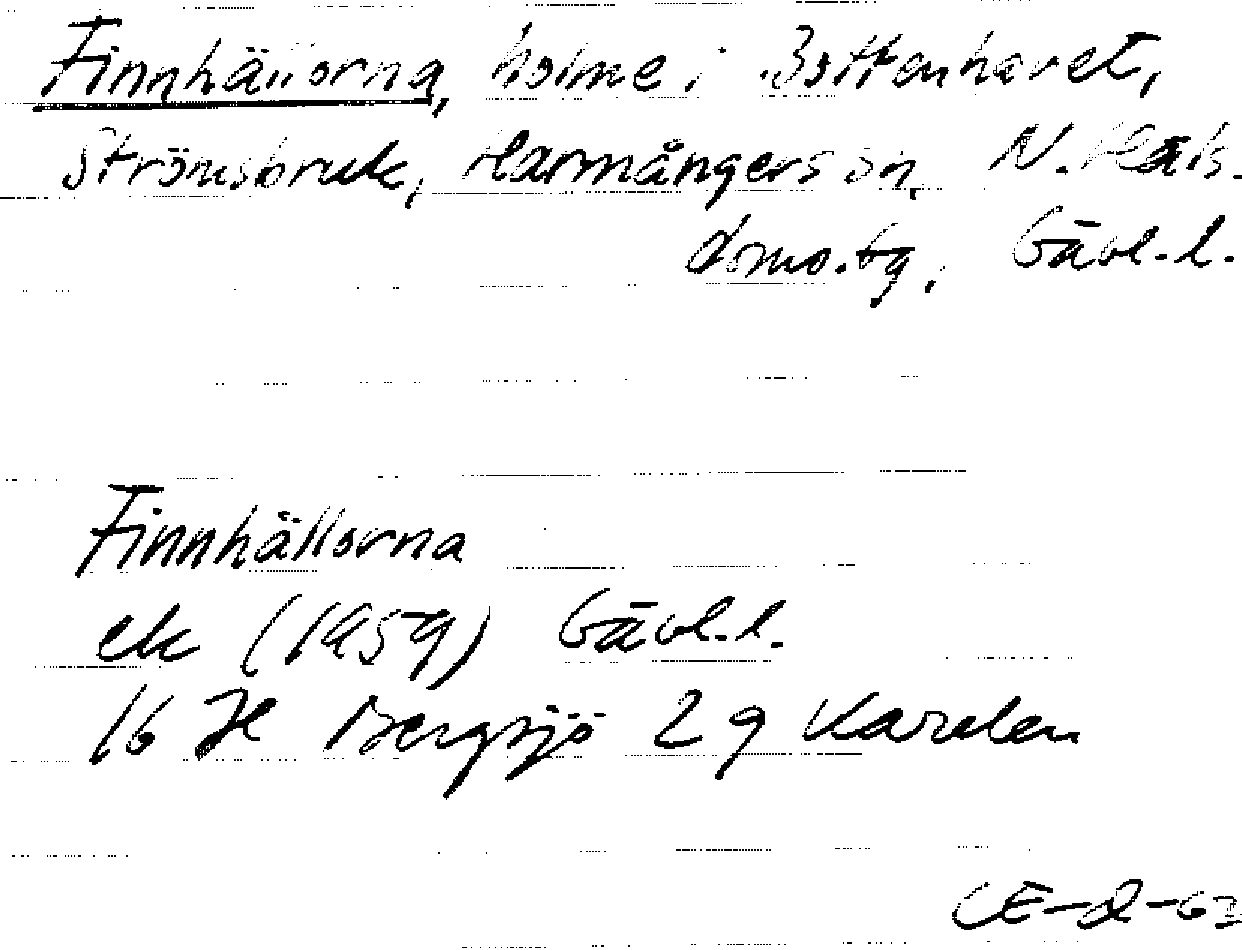 Finnhällorna, holme i Bottenhavet,
Strömsbruk, Harmångers sn, N. Häls.
doms.tg, Gävl.l.
Finnhällorna
ek (1959) Gävl.l.
16 H Bergsjö 2 g Karelen